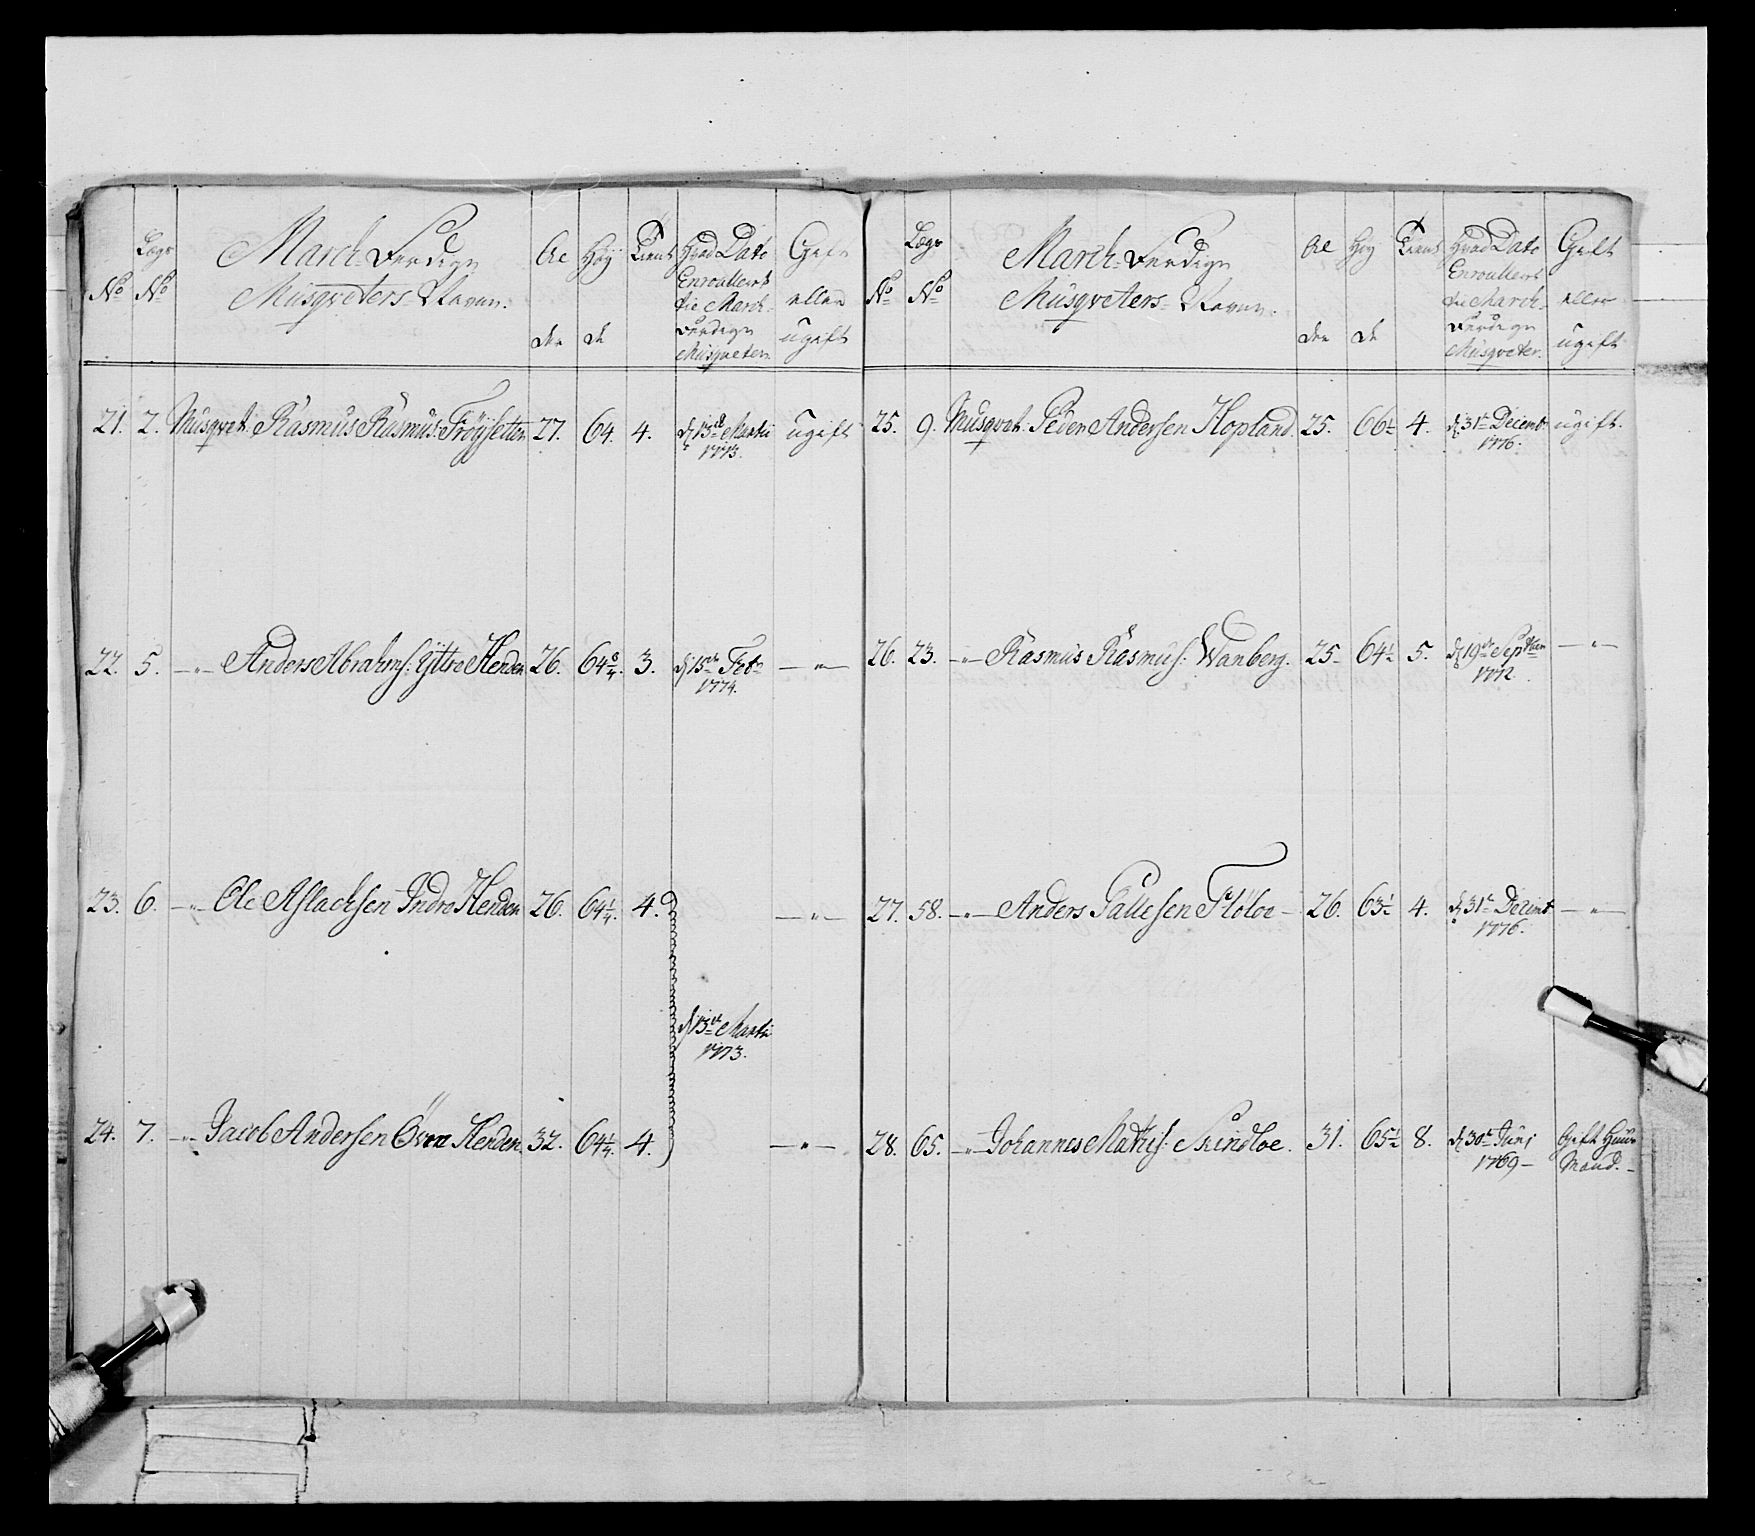 No Lægs No March-Færdige Musqveters Navn. Alder Høyde Tient Hvad Dato Enroullert till March-færdige Musqveter Gift eller ugift
21. 2. Musqvet: Rasmus Rasmus: Frøysetter 27. 64. 4. d 13de Martii 1773. ugift
22. 5. —"— Anders Abrahms: Yttre Henden 26. 64 3/4. 3. d 15de Febr 1774. —"—
23. 6. —"— Ole Aslachsen Indre Henden 26. 64 1/4. 4. —"—
d 13de Martii 1773.
24. 7. —"— Jacob Andersen Øvre Henden 32. 64 1/4. 4. —"—
No Lægs No March-Færdige Musqveters Navn. Alder Høyde Tient Hvad Dato Enroullert till March-færdige Musqveter. Gift eller ugift
25. 9. Musqvet. Peder Andersen Hopland. 25. 66 1/2 4. d 31te Decemb 1776. ugift.
26. 23. —"— Rasmus Rasmus: Wanberg. 25 64 1/2 5. d 19de Septbr 1772. —"—
27. 58. —"— Anders Pallesen Floloe 26. 63 1/2 4. d 31te Decemb 1776. —"—
28. 65. —"— Johannes Mathis: Skindloe. 31. 65 1/2 8. d 30te Junj 1769 — Gift Huus Mand. —